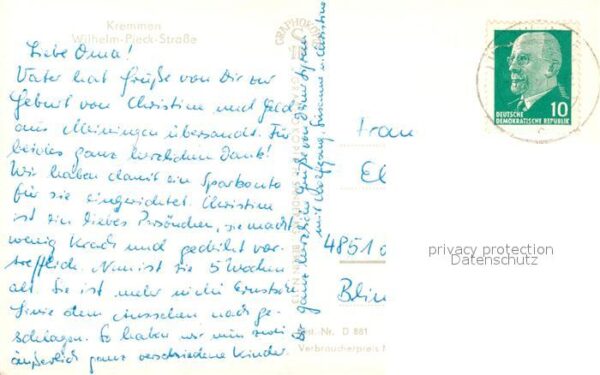 Kremmen
Wilhelm-Pieck-Straße
Liebe Oma!
Vater hat Grüße von Dir zur
Geburt von Christine und Geld
aus Meiningen übersandt. Für
beides ganz herzlichen Dank!
Wir haben damit ein Sparkonto
für sie eingerichtet. Christine
ist ein liebes Persönchen, sie macht
wenig Krach und gedeiht vor-
trefflich. Nun ist sie 5 Wochen
alt. Sie ist mehr nicht
Linie dem Aussehen nach ge-
schlagen. So haben wir nun zwei
äußerlich ganz verschiedene Kinder.
ganz herzliche Grüße von Deiner
mit Wolfgang, Susanne u. Christine
GRAPHOKOPIE
DEUTSCHE
DEMOKRATISCHE REPUBLIK
10
Frau
El
48510
Blin
privacy protection
Datenschutz
Best. Nr. D 881
Verbraucherpreis